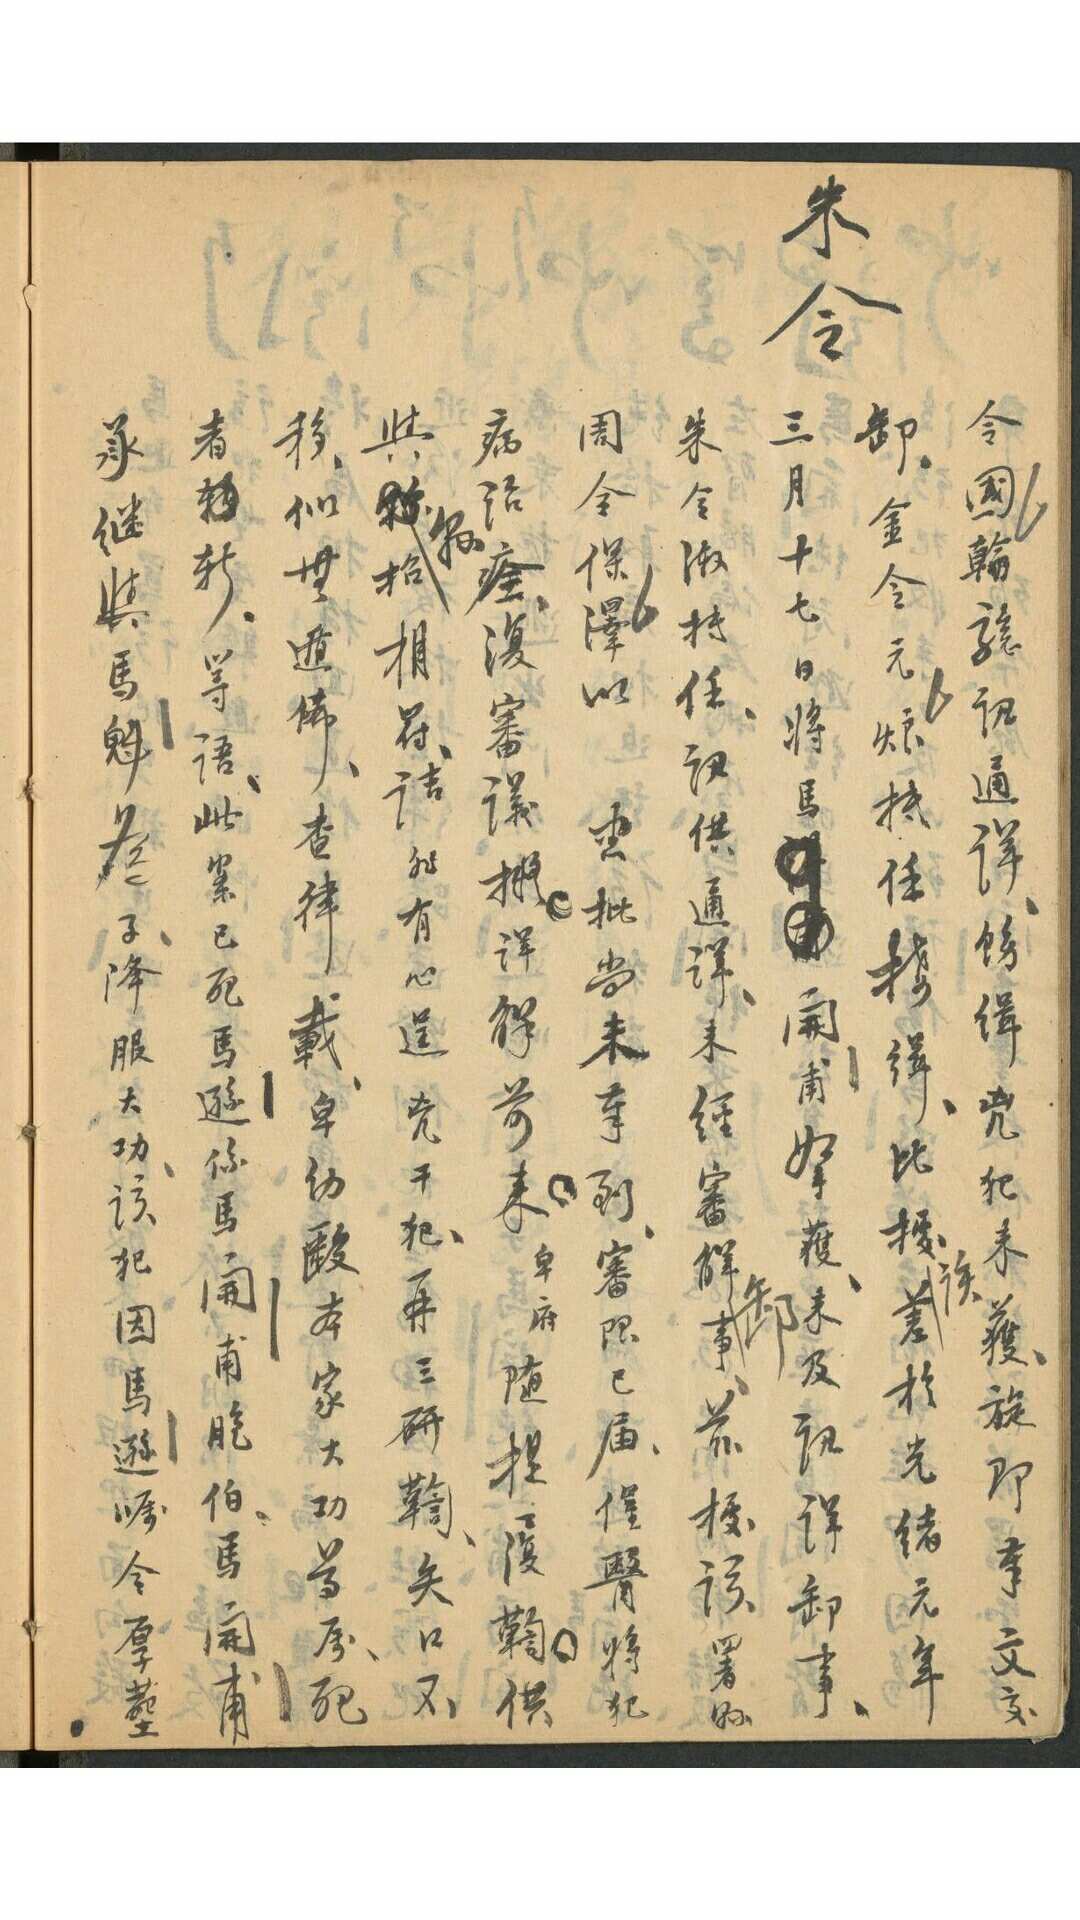 朱令
令國翰詣訊通詳、飭緝兇犯未獲、旋即奉文交
卸、金令元烺接任、接緝、比據該差於光緒元年
三月十七日將馬開甫拏獲、未及訊詳卸事、
朱令淑持任、訊供通詳、未經審解卸事、茲據該署縣
周令保澤以 憲批尚未奉到、審限已届、僅醫將犯
病詒痊、復審議擬詳解前來 卑府隨提覆鞫供
與縣招相符、詰非有心逞兇干犯、再三研鞫、矢口不
移、似無遁飾、查律載、卑幼毆本家大功尊屬、死
者斬、等語、此案已死馬遜係馬開甫胞伯、馬開甫
承繼與馬魁為子、降服大功、該犯因馬遜囑令厚塟